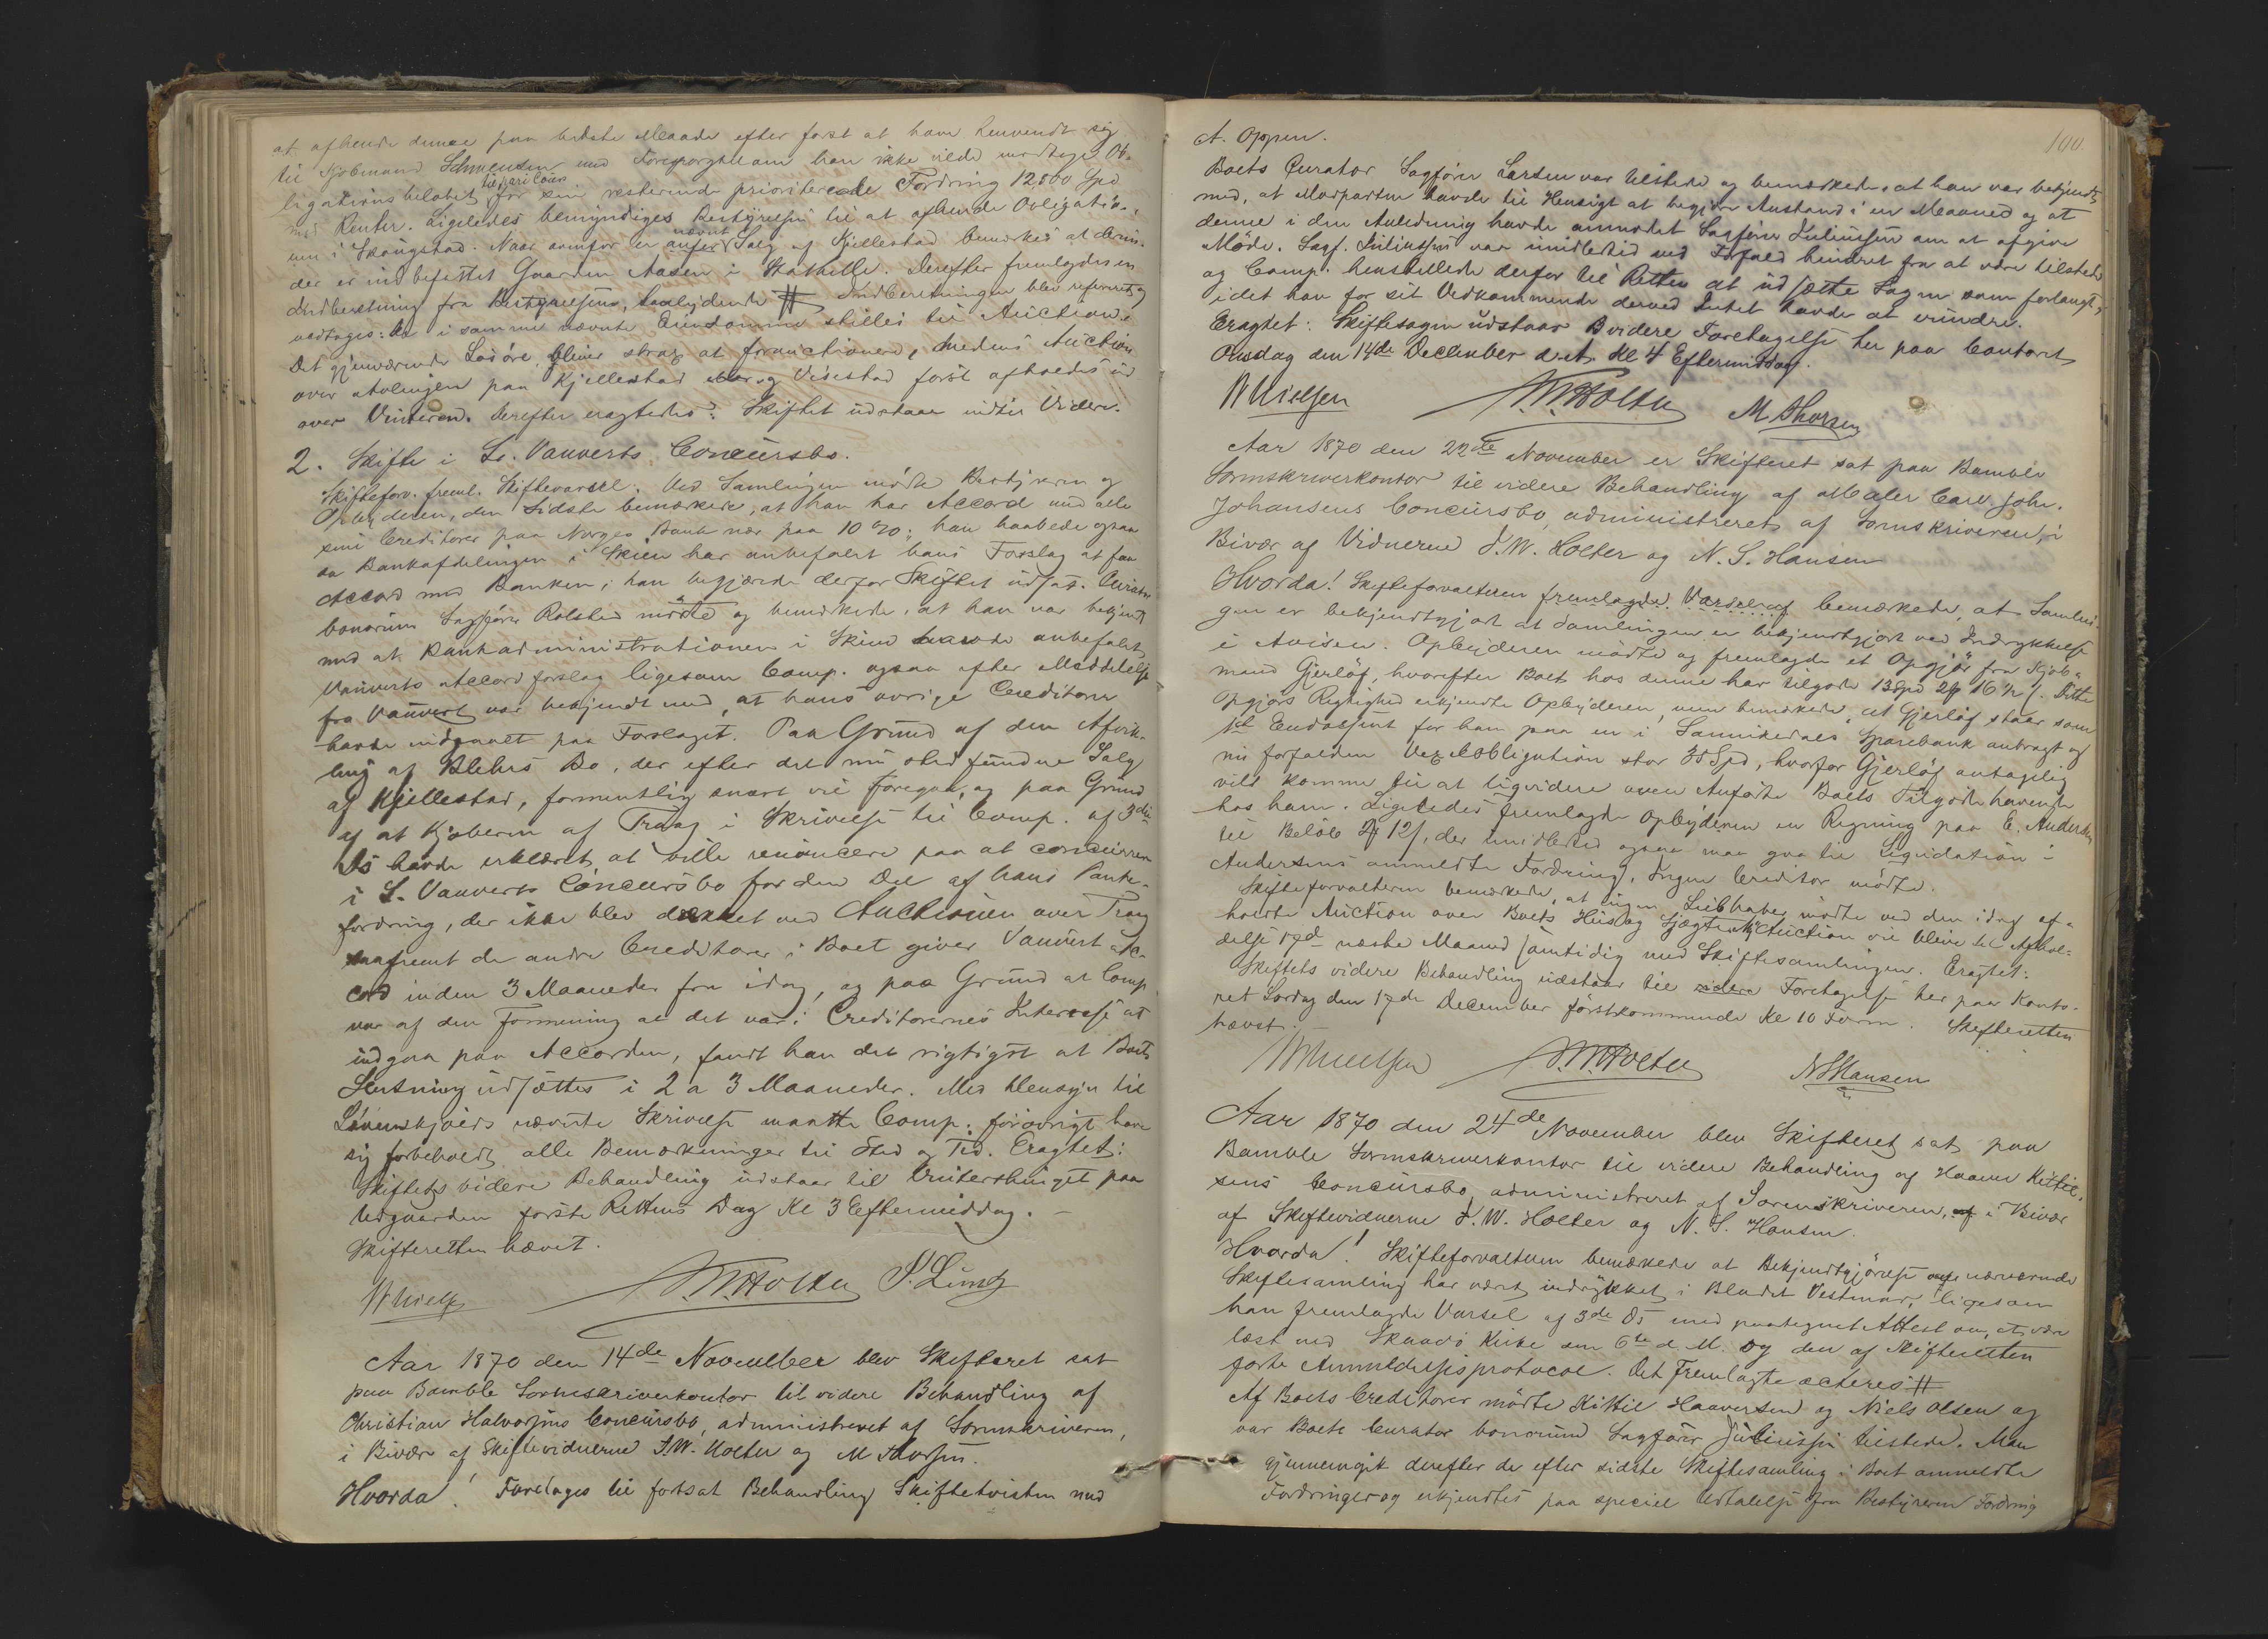 at afhende denne paa bedste Maade efter først at have henvendt sig
til Kjøbmand Schwensen med Forespørgsel om han ikke vilde modtage Ob-
ligationsbeløbet til pari Cours for sin resterende prioriterede Fordring 12500 Spd
med Renter. Ligeledes bemyndiges Bestyrelsen til at afhende Obligatio-
nen i Skougstad. Naar ovenfor er anført nævnt Salg af Kjellestad bemærkes at derun-
der er indbefattet Gaarden Aasen i Stathelle. Derefter fremlagdes en
Indberetning fra Bestyrelsen, saalydende # Indberetningen blev refereret og
vedtages: De i samme nævnte Eiendomme stilles til Auction.
Det gjenværende Løsøre bliver strax at forauctionere, medens Auction
over Avlingen paa Kjellestad og Valestad først afholdes ud
over Vinteren. Derefter eragtedes: Skiftet udstaar indtil Videre.
2. Skifte i L. Vauverts Concursbo.
Skifteforv. freml. Skiftevarsel. Ved Samlingen mødte Bestyreren og
Opbyderen, den sidste bemærkede, at han har Accord med alle
sine Creditorer paa Norges Bank nær paa 10 %; han haabede ogsaa
da Bankafdelingen i Skien har anbefalet hans Forslag at faa
Accord med Banken; han begjærede derfor Skiftet udsat. Curator
bonorum Sagfører Rolsted mødte og bemærkede, at han var bekjendt
med at Bankadministrationen i Skien havde anbefalet
Vauverts Accordforslag ligesom Comp. ogsaa efter Meddelelse
fra Vauvert var bekjendt med, at hans øvrige Creditorer
havde indgaaet paa Forslaget. Paa Grund af den Afvik-
ling af Blehrs Bo, der efter det nu stedfundne Salg
af Kjellestad, formentlig snart vil foregaa, og paa Grund
af at Kjøberen af Traag i Skrivelse til Comp. af 3die
ds havde erklæret at ville renoncere paa at concurrere
i L. Vauverts Concursbo for den Del af hans Pante-
fordring, der ikke blev dækket ved Auctionen over Traag
saafremt de andre Creditorer i Boet giver Vauvert Ac-
cord inden 3 Maaneder fra idag, og paa Grund at Comp.
var af den Formening at det var i Creditorernes Interesse at
indgaa paa Accorden, fandt han det rigtigst at Boets
Slutning udsættes i 2 a 3 Maaneder. Med Hensyn til
Løvenskjolds nævnte Skrivelse maatte Comp. forøvrigt have
sig forbeholdt alle Bemærkninger til Sted og Tid. Eragtet:
Skiftets videre Behandling udstaar til Vinterthinget paa
Vedgaarden første Rettens Dag Kl 3 Eftermiddag. –
Skifteretten hævet.
W Nielsen J.W. Holter P. Lund
Aar 1870 den 14de November blev Skifteret sat
paa Bamble Sorenskriverkontor til videre Behandling af
Christian Halvorsens Concursbo, administreret af Sorenskriveren,
i Bivær af Skiftevidnerne J.W. Holter og M Thorsen.
Hvorda! Foretages til fortsat Behandling Skiftetvisten med
100
A. Oppen.
Boets Curator Sagfører Larsen var tilstede og bemærkede, at han var bekjendt
med, at Modparten havde til Hensigt at begjære Anstand i en Maaned og at
denne i den Anledning havde anmodet Sagfører Juliussen om at afgive
Møde. Sagf. Juliussen var imidlertid ved Forfald hindret fra at være tilstede
og Comp. henstillede derfor til Retten at udsætte Sagen som forlangt,
idet han for sit Vedkommende derved Intet havde at erindre.
Eragtet: Skiftesagen udstaar til videre Foretagelse her paa Contoret
Onsdag den 14de December d.A. Kl 4 Eftermiddag.
W Nielsen J.W. Holter M Thorsen
Aar 1870 den 22de November er Skifteret sat paa Bamble
Sorenskriverkontor til videre Behandling af Maler Carl Joh.
Johansens Concursbo administreret af Sorenskriveren, i
Bivær af Vidnerne J.W. Holter og N. S. Hansen
Hvorda! Skifteforvalteren fremlagde Varsel og bemærkede, at Samlin-
gen er bekjendtgjort at Samlingen er bekjendtgjort ved Indrykkelse
i Avisen. Opbyderen mødte og fremlagde et Opgjør fra Kjøb-
mand Gjerløf, hvorefter Boet hos denne har tilgode 13 Spd 2 # 16 ½ s. Dette
Opgjørs Rigtighed erkjendte Opbyderen, men bemærkede, at Gjerløf staar som
1st Endossent for ham paa en i Sannikedals Sparebank anbragt og
nu forfalden Vexelobligation stor 35 Spd, hvorfor Gjerløf antagelig
vilde komme til at liqvidere oven Anførte Boets Tilgodehavende
hos ham. Ligeledes fremlagde Opbyderen en Regning paa E. Andersen
til Beløb 2 # 12 s, der imidlertid ogsaa maa gaa til Liqvidation i
Andersens anmeldte Fordring. Ingen Creditor mødte.
Skifteforvalteren bemærkede, at ingen Liebhaber mødte ved den idag af-
holdte Auction over Boets Hus og Sjægte. Ny Auction vil blive til Afhol-
delse 17d næste Maaned samtidig med Skiftesamlingen. Eragtet:
Skiftets videre Behandling udstaar til videre Foretagelse her paa Konto-
ret Lørdag den 17de December førstkommende Kl 10 Form. Skifteretten
hævet.
W Nielsen J.W. Holter N S Hansen
Aar 1870 den 24de November blev Skifteret sat paa
Bamble Sorenskriverkontor til videre Behandling af Haaver Kittil-
sens Concursbo, administreret af Sorenskriveren, i Bivær
af Skiftevidnerne J. W. Holter og N. S. Hansen.
Hvorda! Skifteforvalteren bemærkede at Bekjendtgjørelse om nærværende
Skiftesamling har været indrykket i Bladet Vestmar, ligesom
han fremlagde Varsel af 3de Ds med paategnet Attest om, at være
læst ved Skaadø Kirke den 6te d. M. og den af Skifteretten
førte Anmeldelsesprotocol. Det Fremlagte acteres #
Af Boets Creditorer mødte Kittil Haaversen og Niels Olsen og
var Boets Curator bonorum Sagfører Juliussen tilstede. Man
gjennemgik derefter de efter sidste Skiftesamling i Boet anmeldte
Fordringer og erkjendtes paa speciel Udtalelse fra Bestyreren Fordring